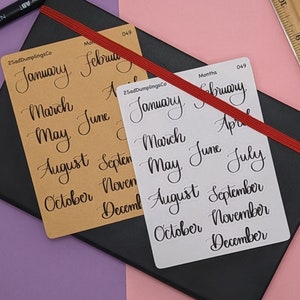 2SadDumplingsCo Mo 049
January February
March
May
August
October
Septem
Novem
Decem
2SadDumplingsCo Months 049
January February
March April
May June July
August September
October November
December